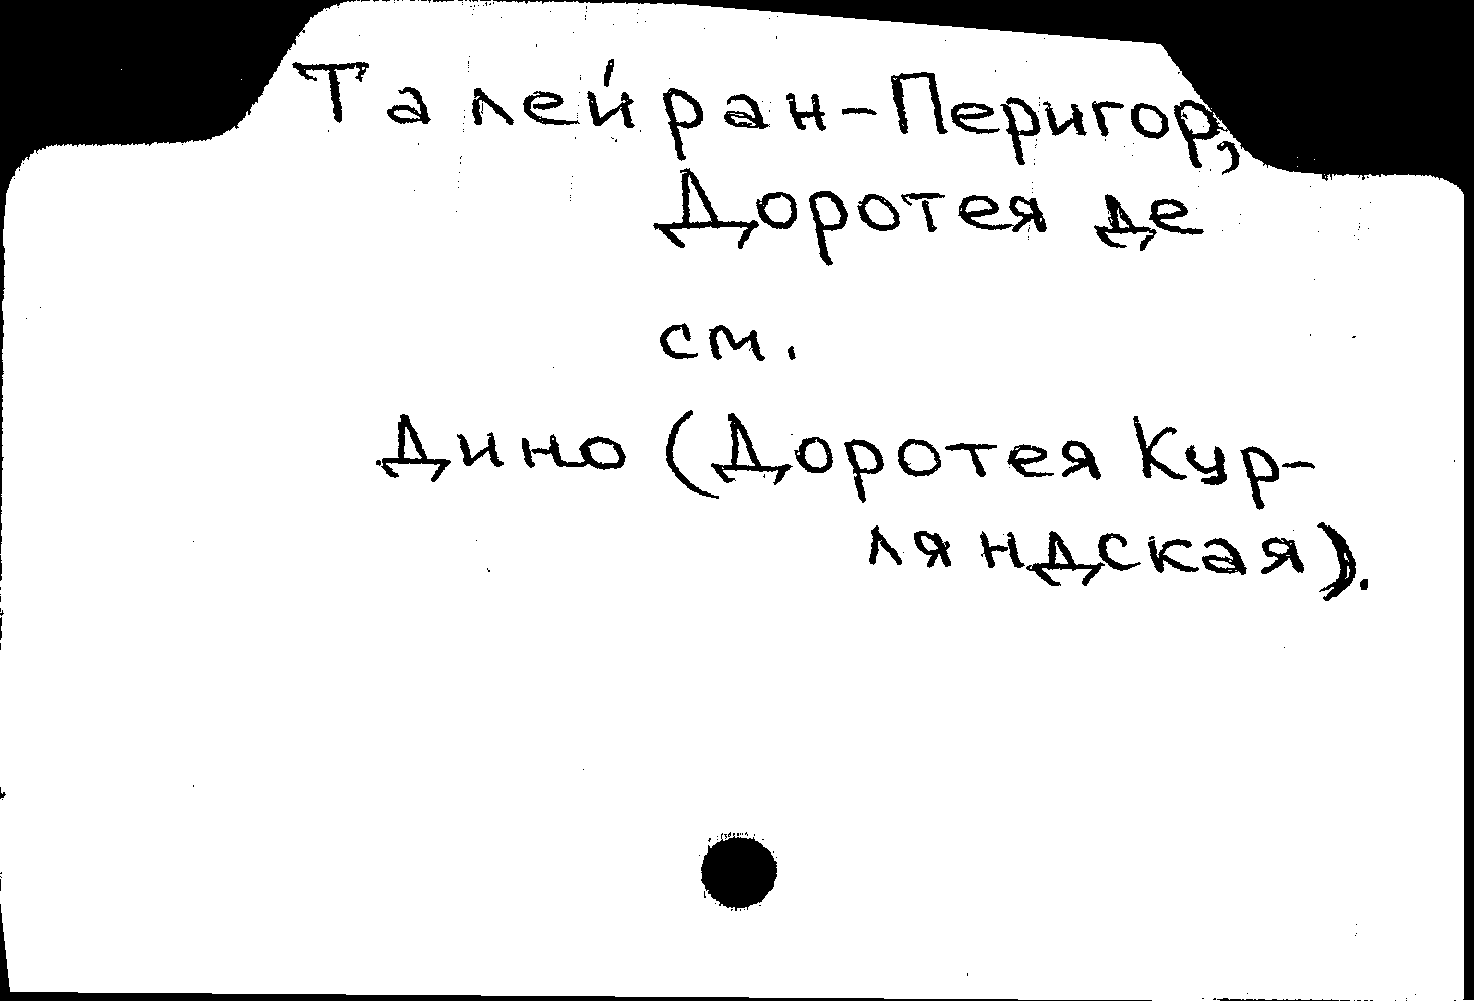 Талейран-Перигор,
Доротея де
см.
Дино (Доротея Кур-
ляндская).